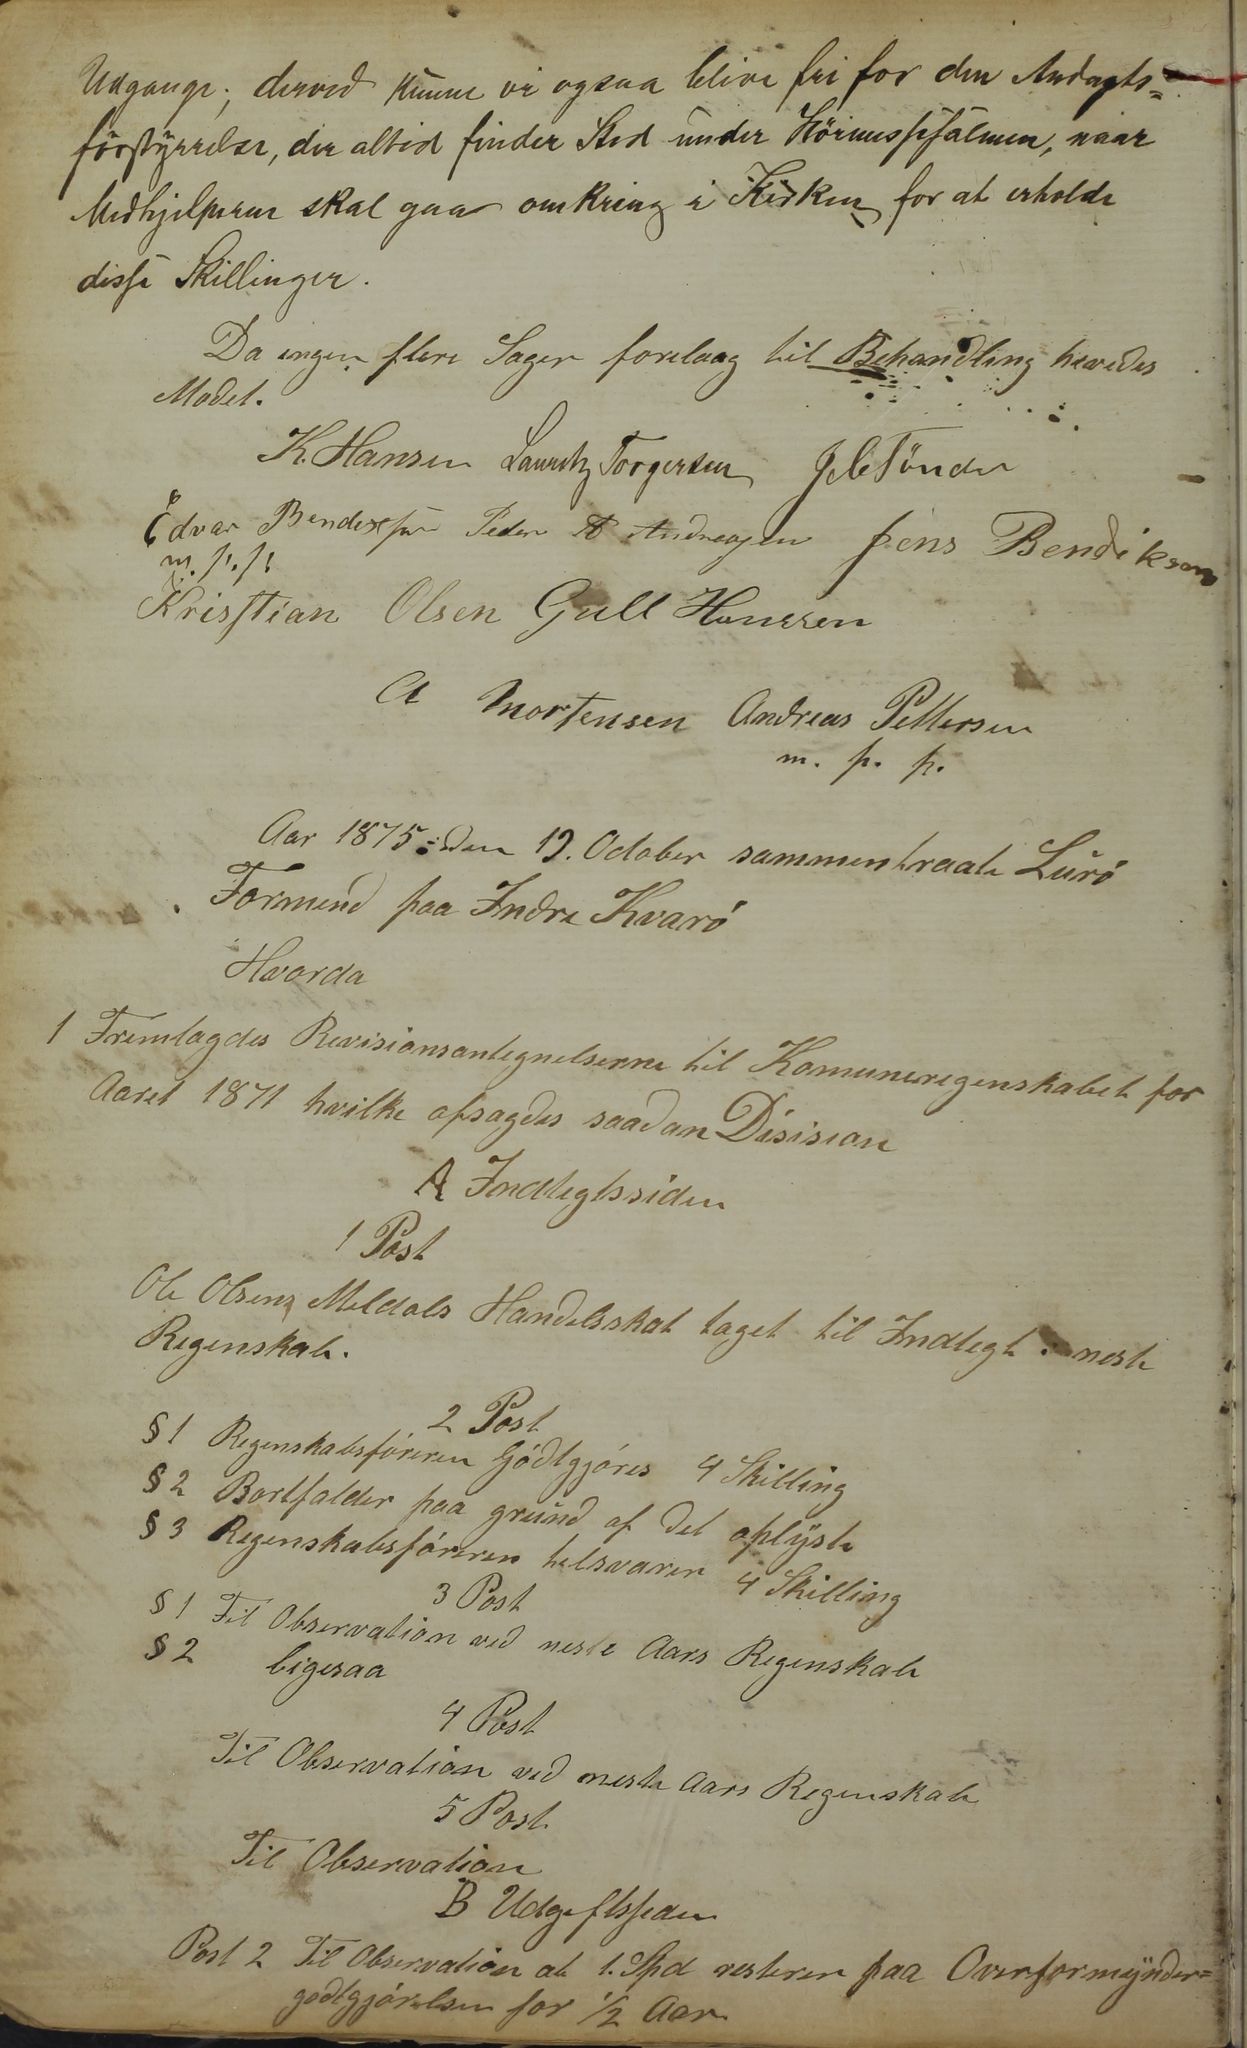 Udgange; derved kunne vi ogsaa blive fri for den Andagts=
förstyrrelse, der altid finder Sted under Höimessesalmen, naar
Medhjelperen skal gaa omkring i Kirken for at erholde
disse Skillinger.
Da ingen flere Sager forelaag til Behandling hævedes
Mödet.
K. Hansen Lauritz Torgersen J C Tönder
Edvar Bendixsen Peder A Andreassen Jens Bendiksen
m. p. p.
Kristian Olsen Gull Hanssen
A Mortensen Andreas Pettersen
m. p. p.
Aar 1875 den 19. October sammentraate Lurö
Formend paa Indre Kvarö
Hvorda
1 Fremlagdes Revisionsantegnelserne til Komuneregenskabet for
Aaret 1871 hvilke afsagdes saadan Disision
A Indtegtssiden
1 Post
Ole Olsens Meldals Handelsskat taget til Indtegt i neste
Regenskab.
2 Post
§ 1 Regenskabsföreren Gödtgjöres 4 Skilling
§ 2 Bortfalder paa grund af det oplyste
§ 3 Regenskabsföreren tilsvarer 4 Skilling
3 Post
§ 1 Til Observation ved neste Aars Regenskab
§ 2 ligesaa
4 Post
Til Observation ved neste Aars Regenskab
5 Post
Til Observation
B Udgiftssiden
Post 2 Til Observation at 1. Spd resterer paa Overformynder=
godtgjörelsen for 1/2 Aar